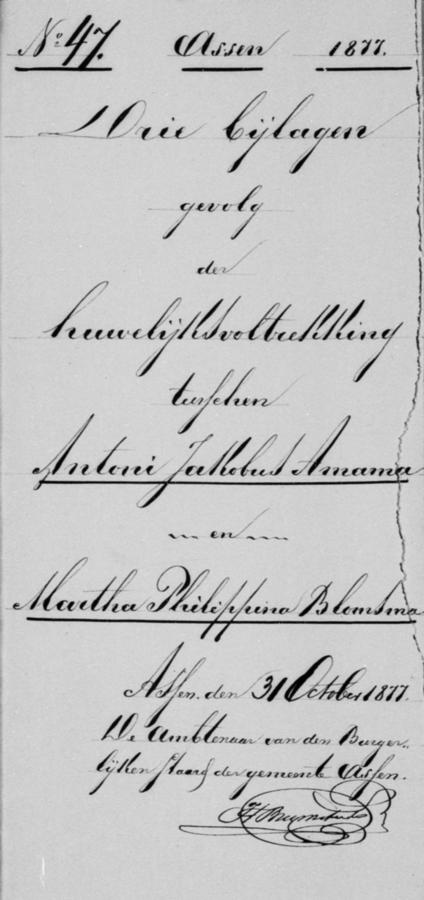 No. 47. Assen 1877.
Drie bijlagen
gevolg
der
huwelijksvoltrekking
tusschen
Antoni Jakobus Amama
en
Martha Philippina Blomsma
Assen, den 31 October 1877.
De Ambtenaar van den Burger-
lijken staand der gemeente Assen.